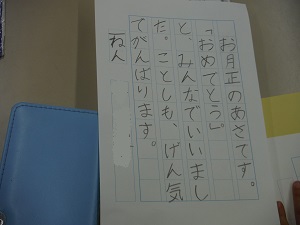 お月正のあさです。
「おめでとう」
と、みんなでいいまし
た。ことしも、げん気
でがんばります。
一ねん